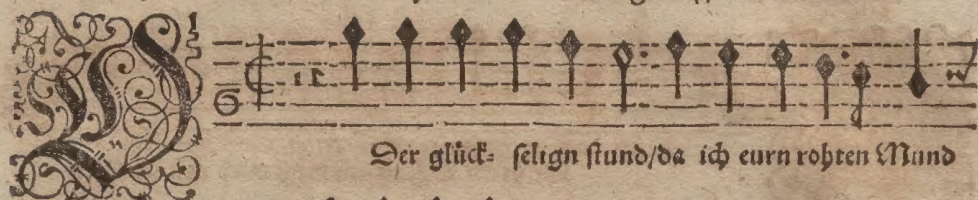 O
Der glück= selign stund/da ich eurn rohten Mund